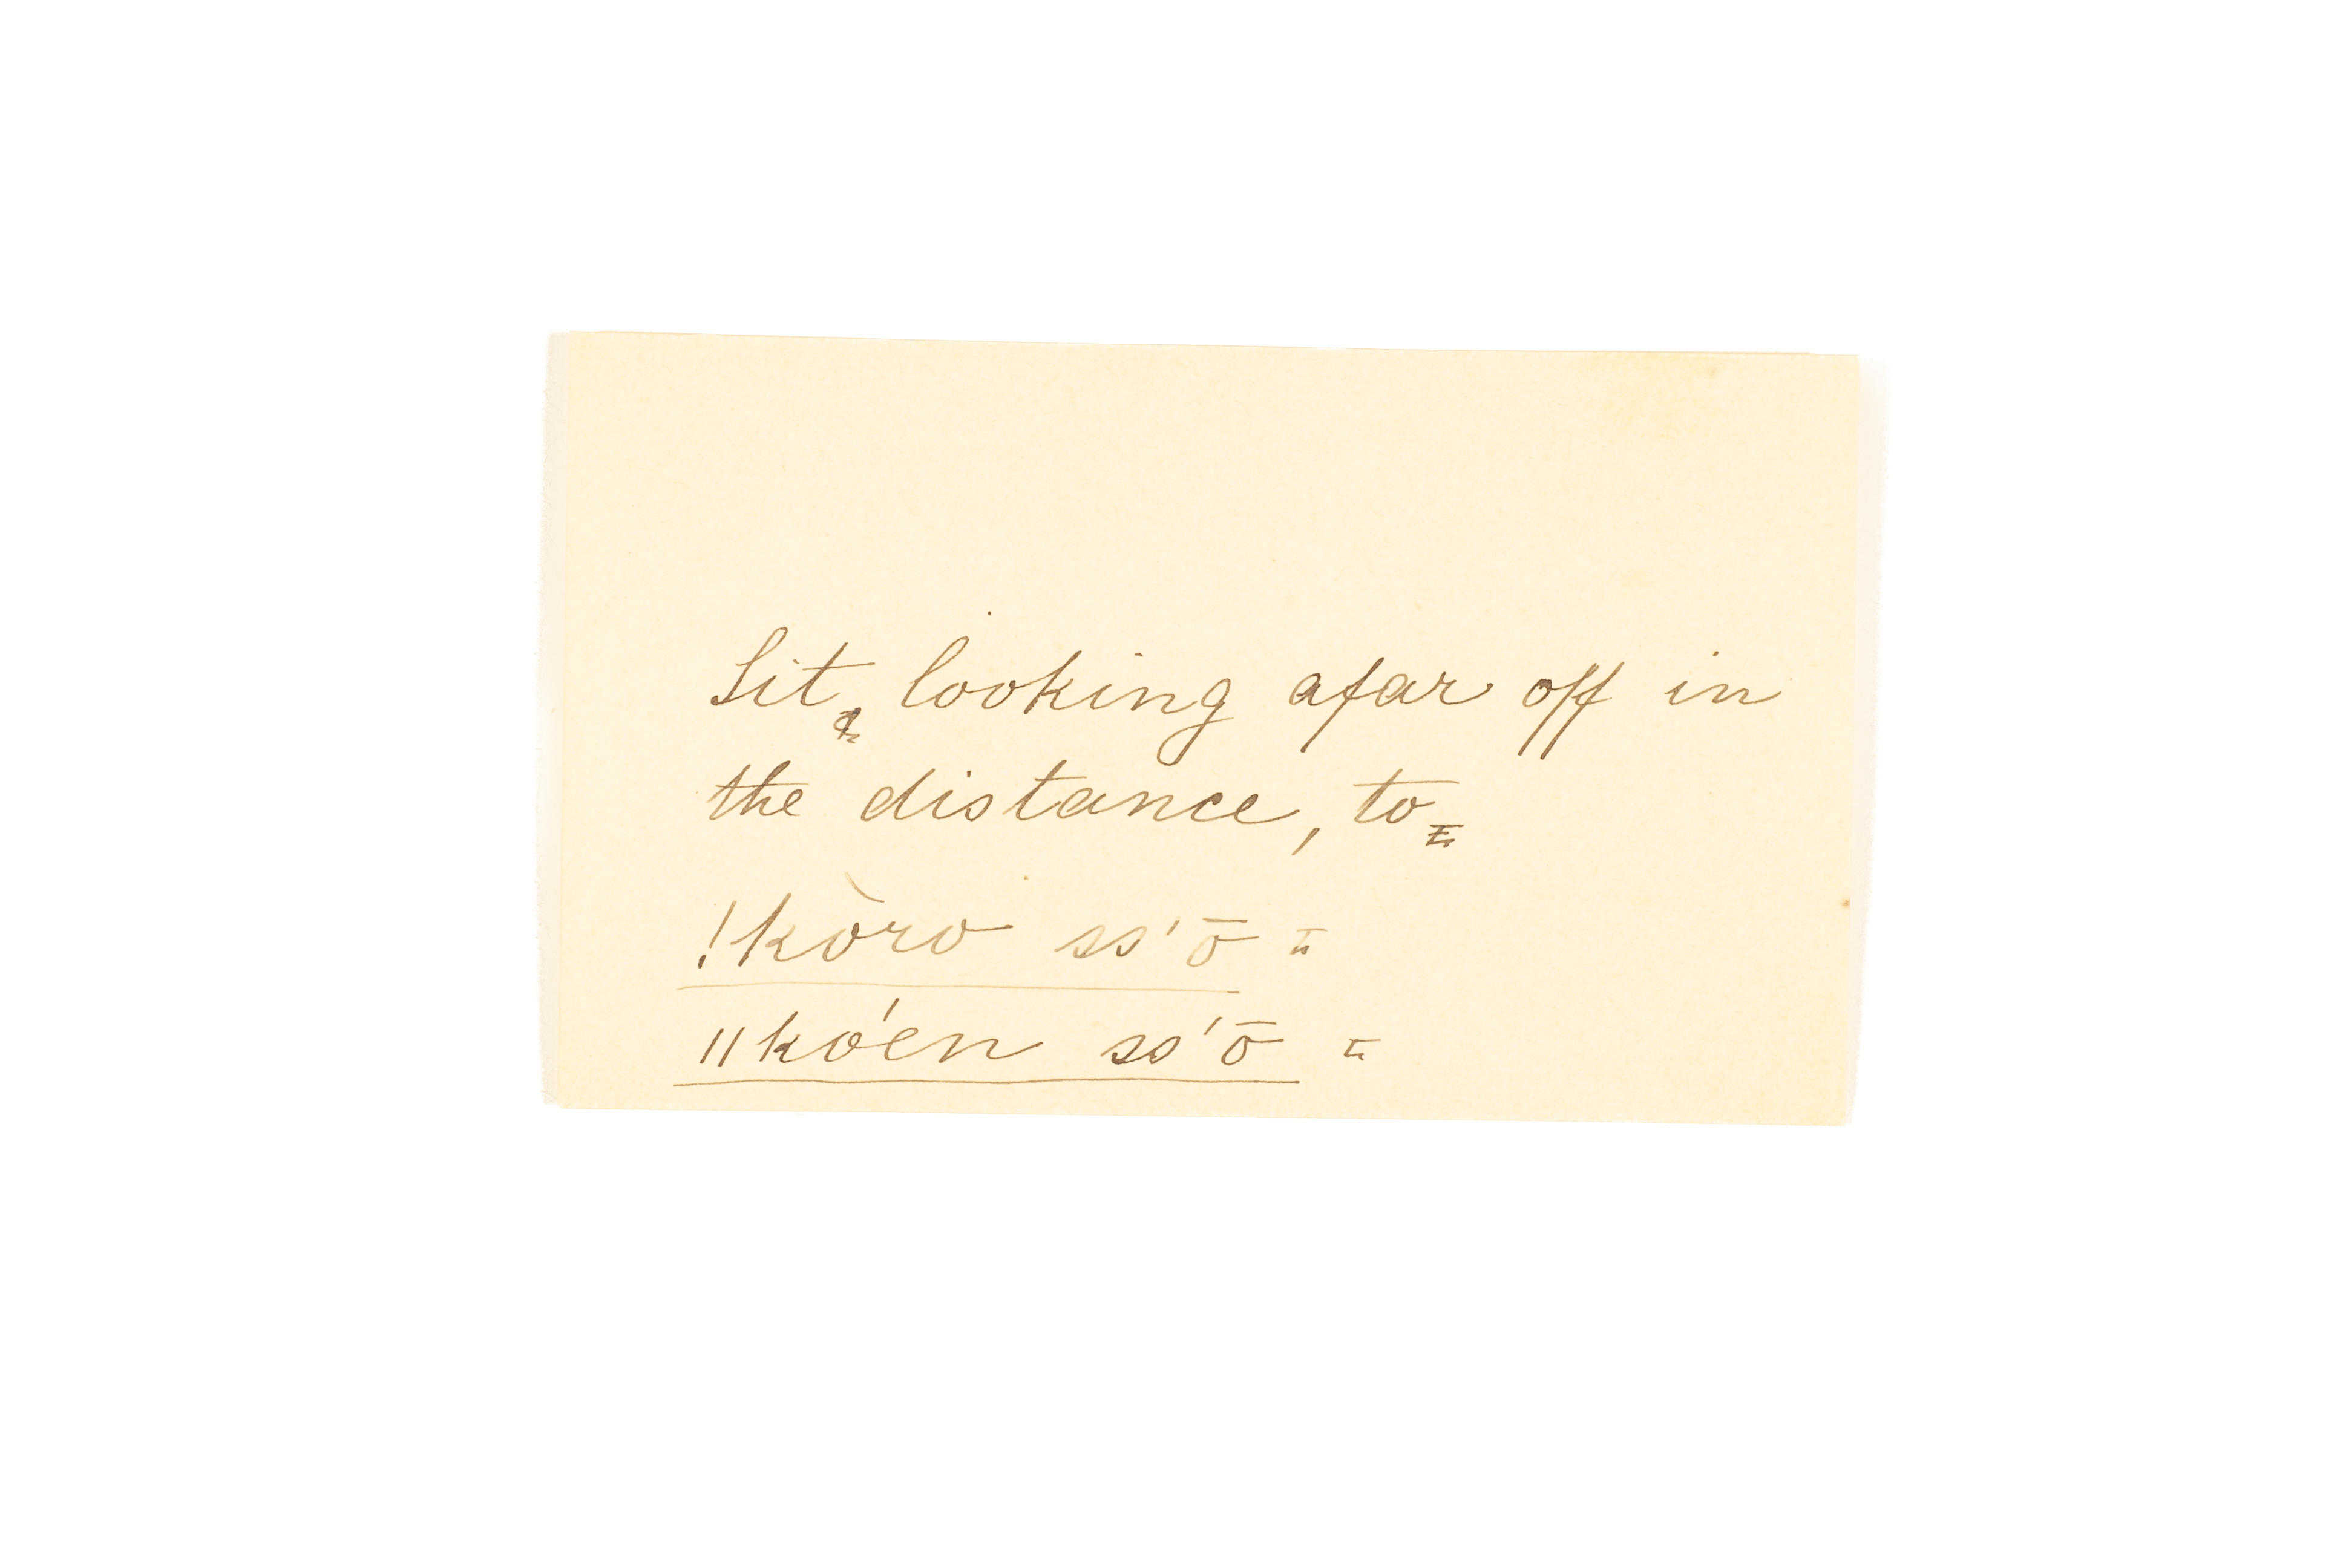 Sit, looking afar off in
the distance, to
!kòro ss'ō
ǁkó'en ss'ō